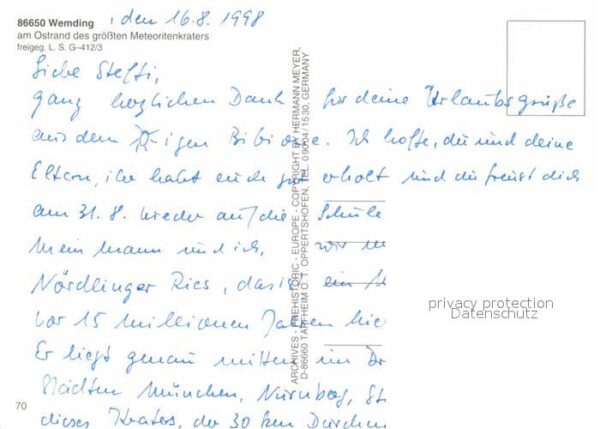 86650 Wemding, den 16.8.1998
am Ostrand des größten Meteoritenkraters
freigeg. L. S. G–412/3
Liebe Steffi,
ganz herzlichen Dank für deine Urlaubsgrüße
aus dem igen Bibione. Ich hoffe, du und deine
Eltern, ihr habt euch gut erholt und du freust dich
am 31.8. wieder auf die Schule
Mein Mann und ich, wir
Nördlinger Ries, das ein
vor 15 Millionen Jahren
Er liegt genau mitten im
Städten München, Nürnberg, St
dieses Kraters, der 30 km Durchm
70
ARCHIVES - PREHISTORIC - EUROPE - COPYRIGHT BY HERMANN MEYER,
D-86660 TAPFHEIM O. T. OPPERTSHOFEN, TEL. 09004/1530, GERMANY
privacy protection
Datenschutz